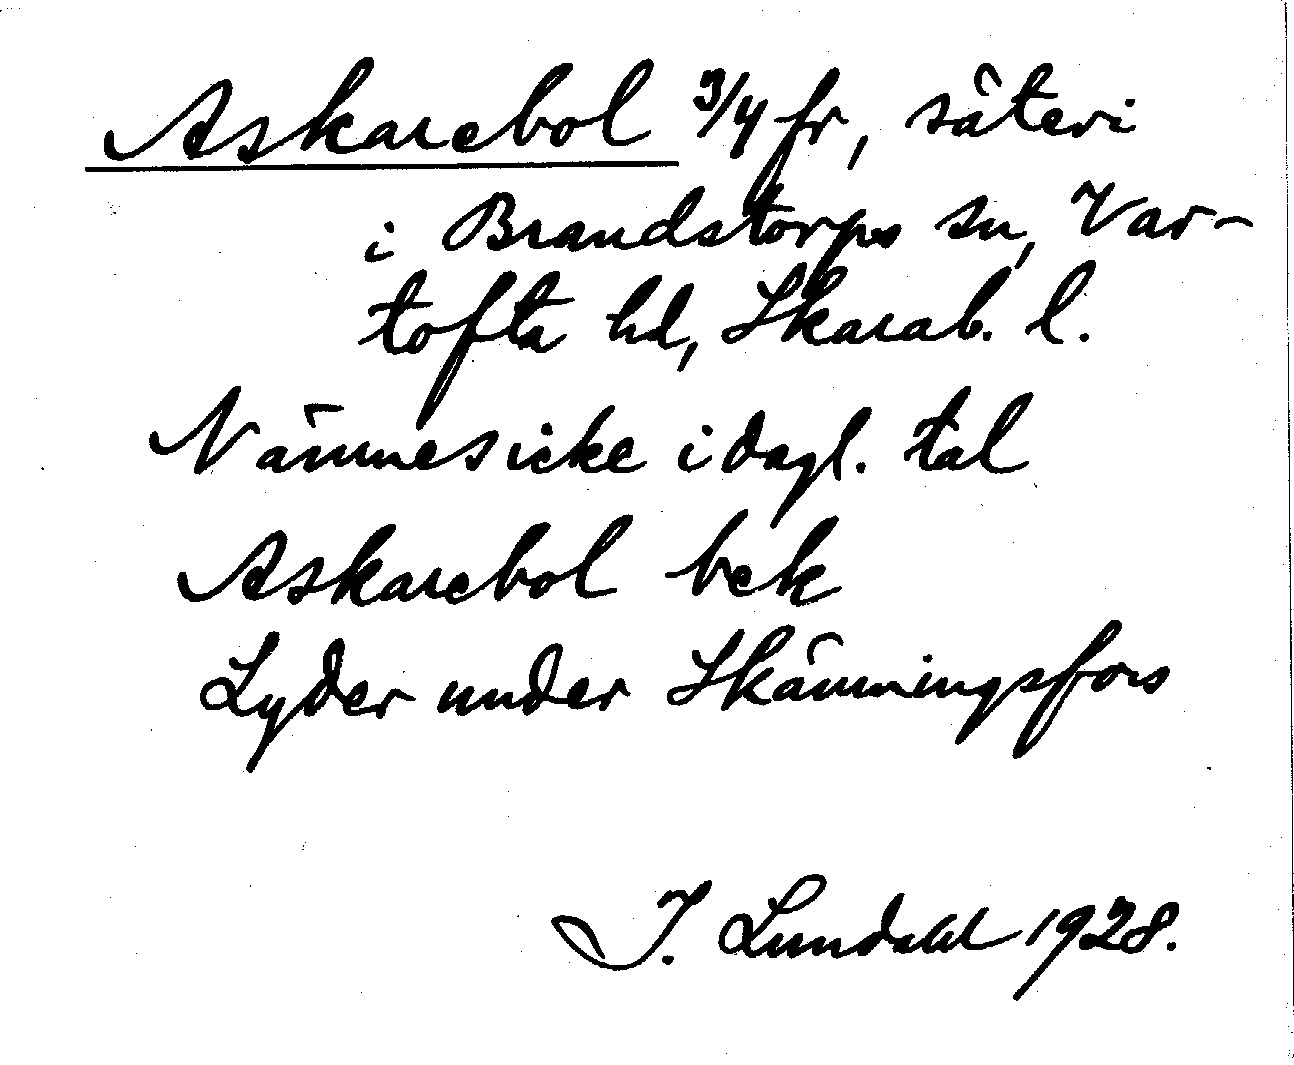 Askarebol 3/4 fr, säteri
i Brandstorps sn, Var-
tofta hd, Skarab. l.
Nämnes icke i dagl. tal
Askarebol bek
Lyder under Skämningsfors
I. Lundahl 1928.